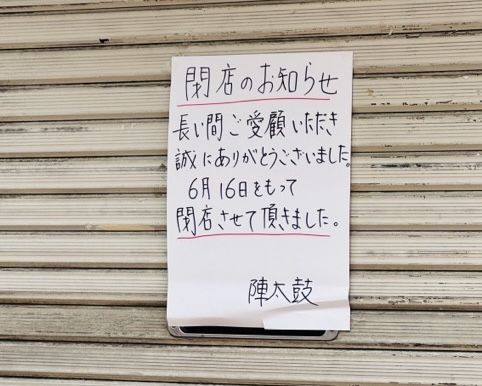 閉店のお知らせ
長い間ご愛顧いただき
誠にありがとうございました。
6月16日をもって
閉店させて頂きました。
陣太鼓